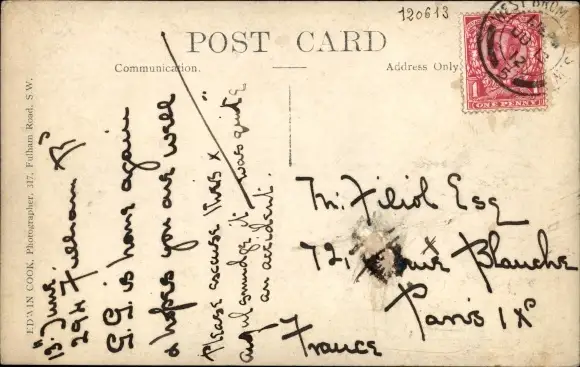 120613
POST CARD
Communication.
Address Only.
WEST BROM
ONE PENNY
1
EDWIN COOK, Photographer, 317, Fulham Road, S.W.
13. June.
294 Fulham Rd
G.G. is home again
& hopes you are well
Please excuse this x
awful smudge it was quite
an accident.
M. Filiol Esq
72, Rue Blanche
Paris IX
France